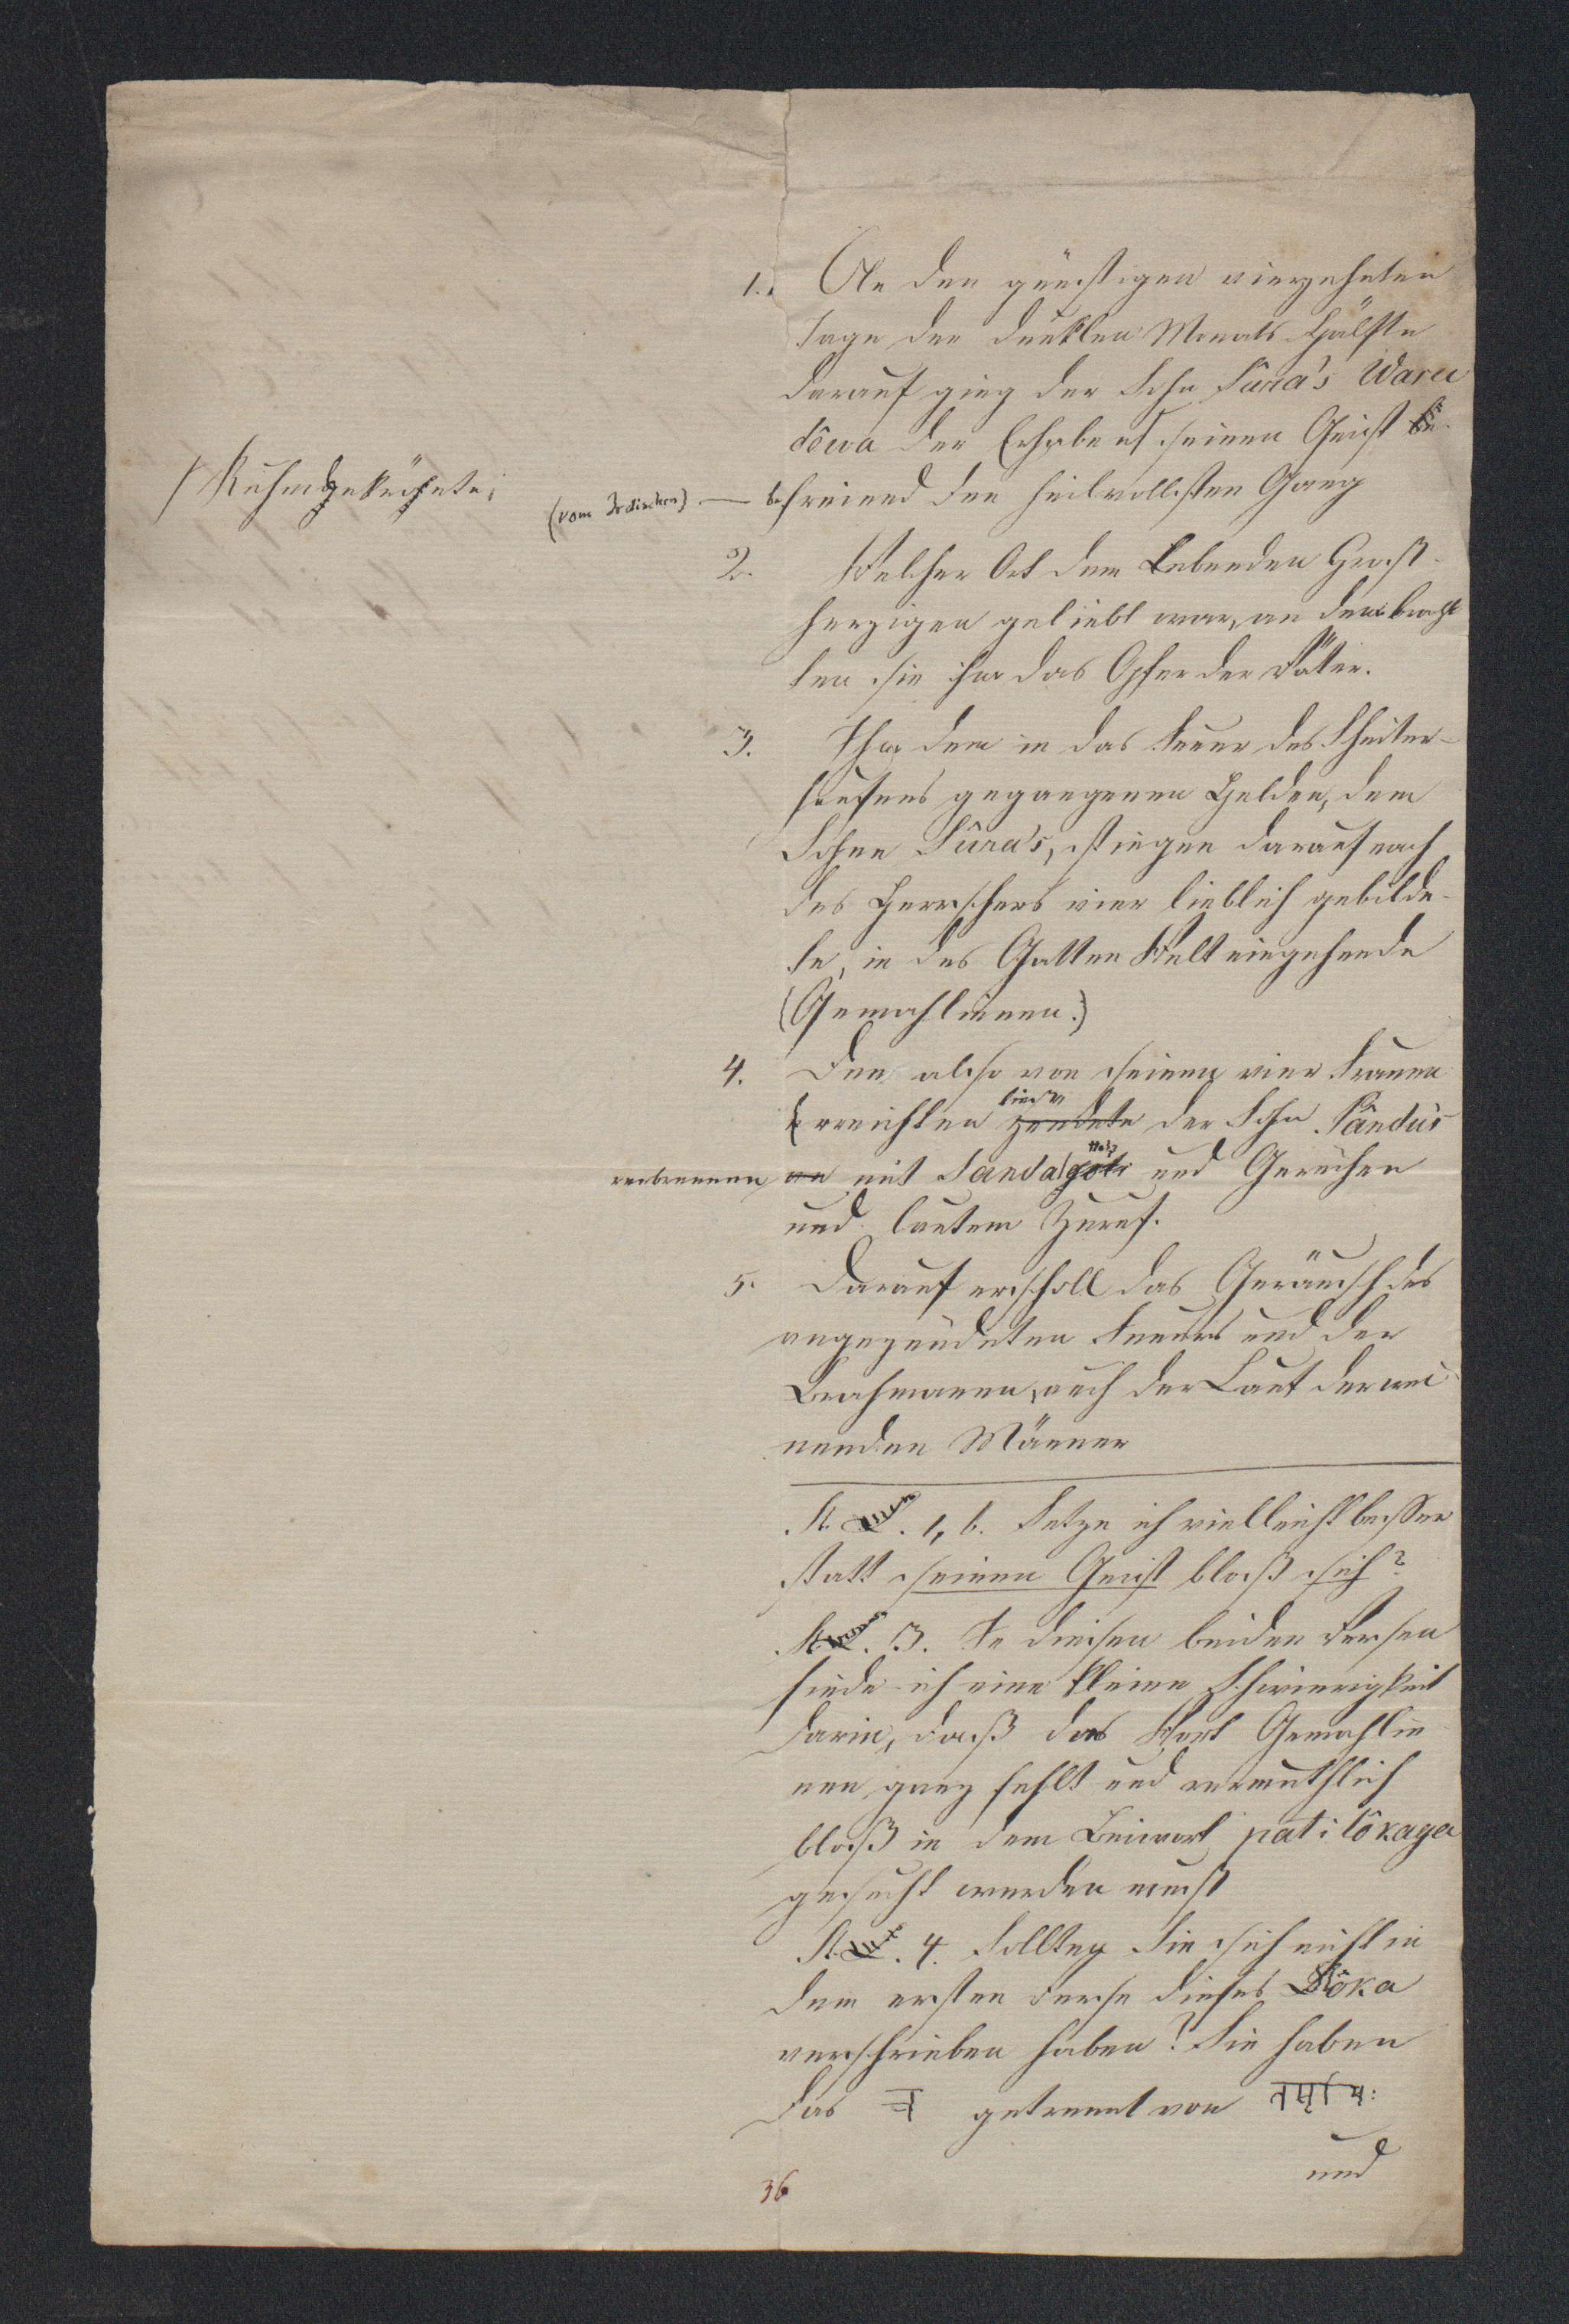 1. An dem günstigen vierzehnten
Tage der dunklen Monats-Hälfte
darauf ging der Sohn Sûra's Wasu
dêwa der Erhabene / seinen Geist be-
/ Ruhmgekrönte,
(vom Irdischen) — befreiend den heilvollsten Gang
2. Welcher Ort dem Lebenden Groß-
herzigen geliebt war, an dem brach
ten sie ihm das Opfer der Väter.
3. Ihm dem in das Feuer des Scheiter-
haufens gegangenen Helden, dem
Sohne Sûra's, stiegen darauf nach
des Herrschers vier lieblich gebilde-
te, in des Gatten Welt eingehende
(Gemahlinnen.)
4. Den also von seinen vier Frauen
ließ
Erreichten zündete der Sohn Pându's
Holz
verbrennen an mit Sandal und Gerüchen
und lautem Zuruf.
5. Darauf erscholl das Geräusch des
angezündeten Feuers und der
Brahmanen, auch der Laut der wei
nenden Männer
St. 1, b. Setze ich vielleicht besser
statt seinen Geist bloß sich?
St. 3. In diesen beiden Versen
finde ich eine kleine Schwierigkeit
darin, daß das Wort Gemahlin
nen ganz fehlt und vermuthlich
bloß in dem Beiwort patilôkaga
gesucht werden muß
St. 4. Sollten Sie sich nicht in
dem ersten Verse dieses Slôka
verschrieben haben? Sie haben
das getrennt von
und
36